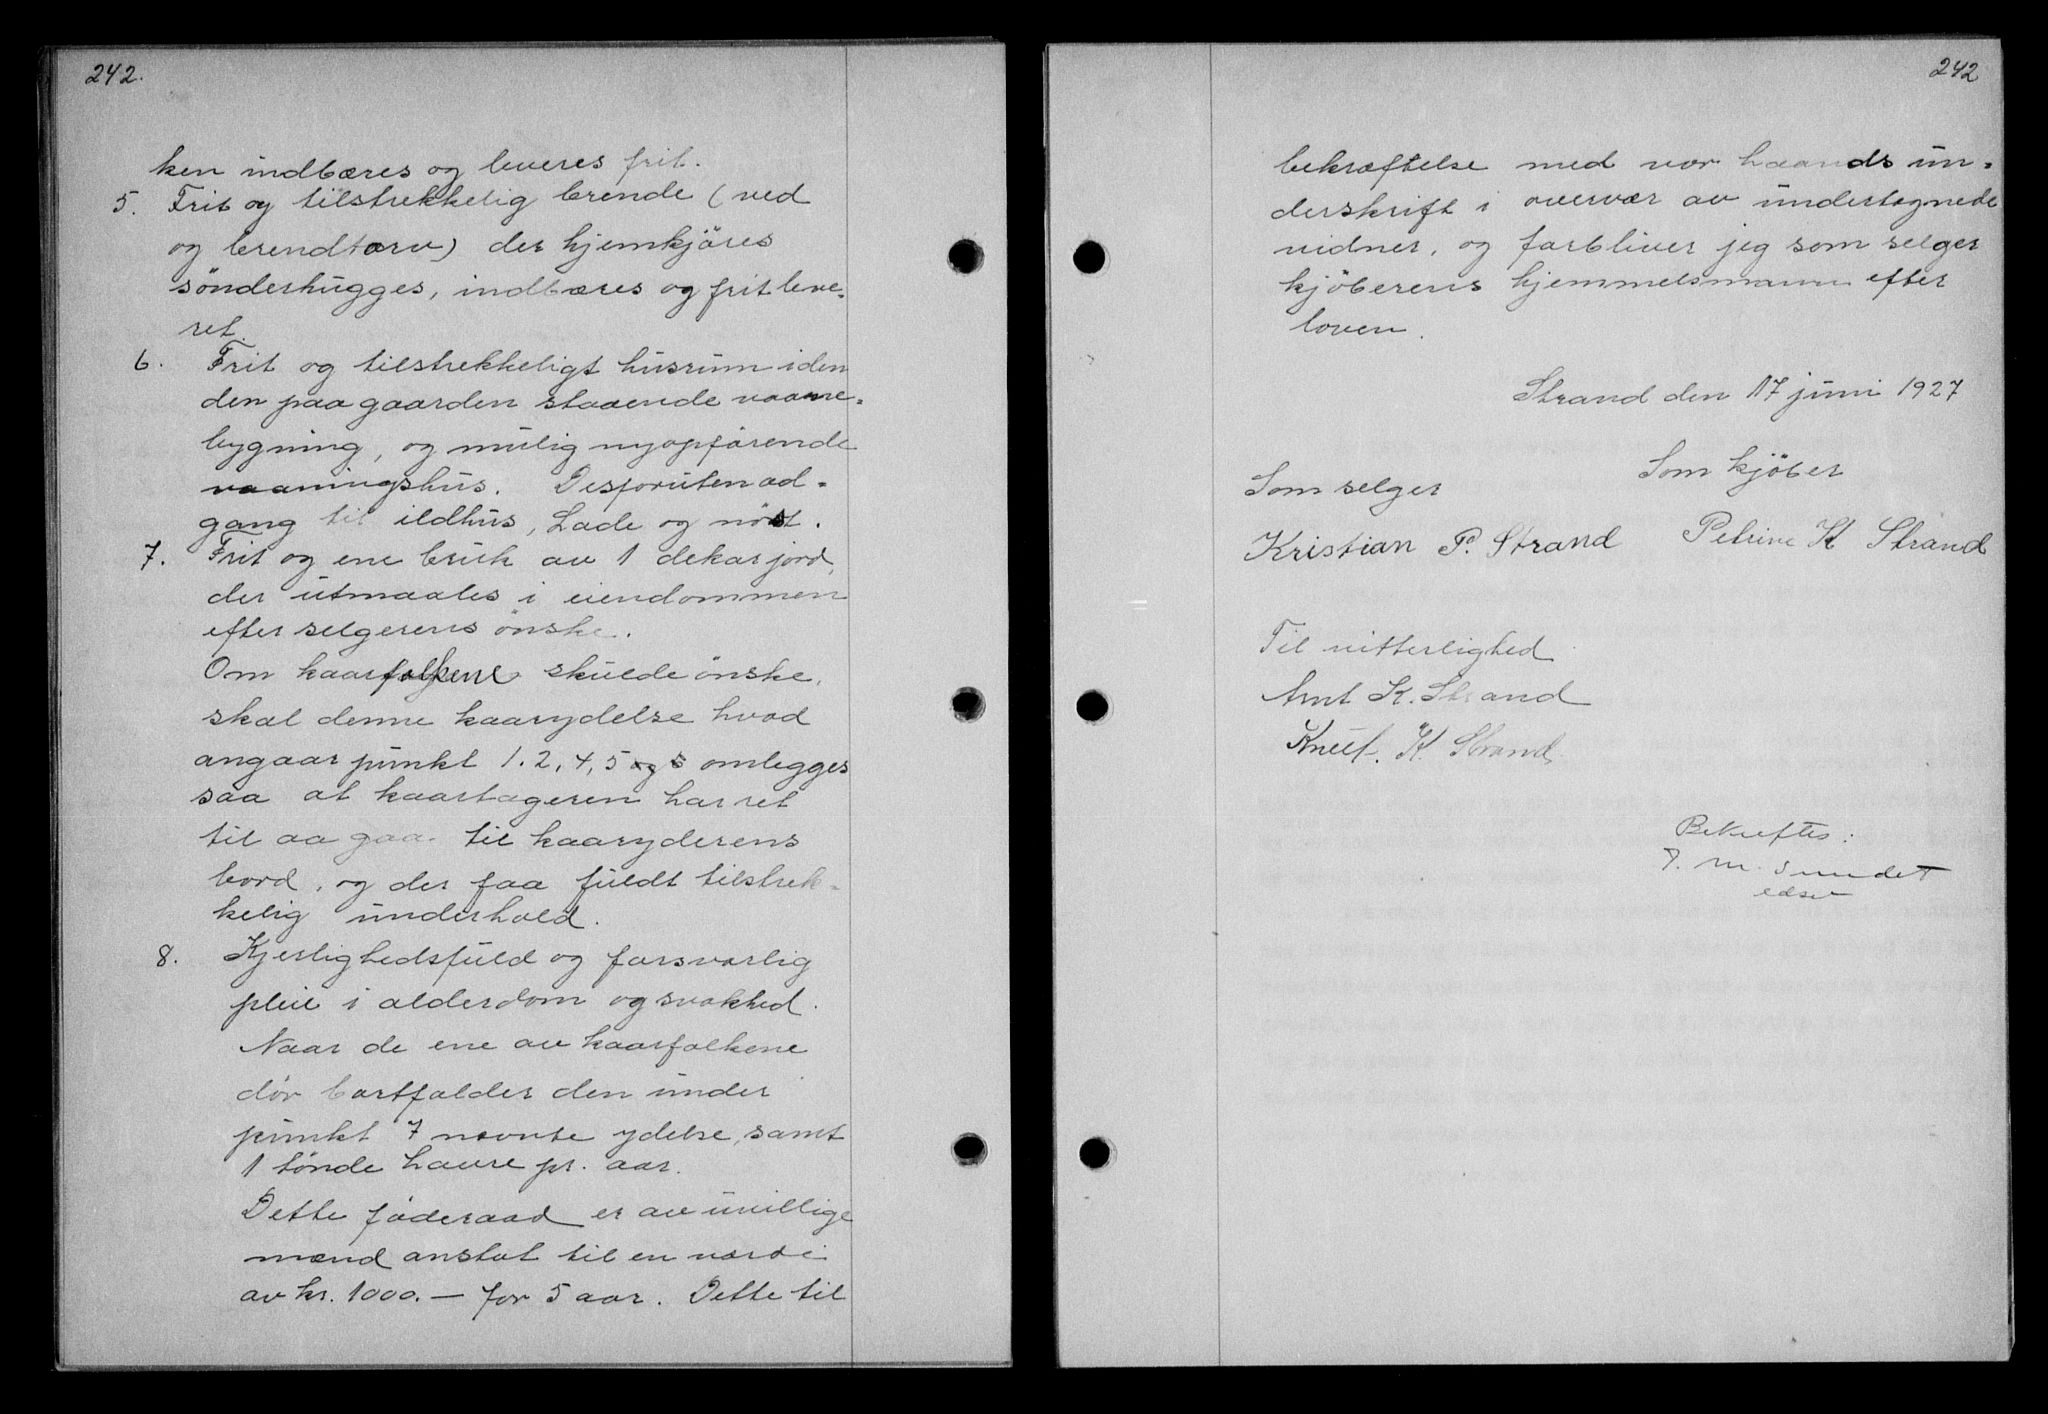 242.
ken indbæres og leveres frit.
5. Frit og tilstrekkelig brende (ved
og brendtorv) der hjemkjöres
sönderhugges, indbæres og frit leve-
ret.
6. Frit og tilstrekkeligt husrum i den
den paa gaarden staaende vaane-
bygning, og mulig nyopförende
vaaningshus. Desforuten ad-
gang til ildhus, Lade og nöst.
7. Frit og ene bruk av 1 dekar jord,
der utmaales i eiendommen
efter selgerens önske.
Om kaarfolkene skulde önske,
skal denne kaarydelse hvad
angaar punkt 1. 2, 4, 5 omlegges
saa at kaartageren har ret
til aa gaa til kaaryderens
bord, og der faa fuldt tilstrek-
kelig underhold.
8. Kjerlighedsfuld og forsvarlig
pleie i alderdom og svakhed.
Naar de ene av kaarfolkene
dör bortfalder den under
punkt 7 nævnte ydelse, samt
1 tönde havre pr. aar.
Dette föderaad er av uvillige
mænd anslat til en værdi
av kr. 1000.- for 5 aar. Dette til
242
bekræftelse med vor haands un-
derskrift i overvær av undertegnede
vidner, og forbliver jeg som selger
kjöberens hjemmelsmann efter
loven.
Strand den 17 juni 1927
Som selger
Som kjöber
Kristian P. Strand
Petrine K Strand
Til vitterlighed
Arnt K. Strand
Knut. K. Strand
Bekreftes:
M. Sundet